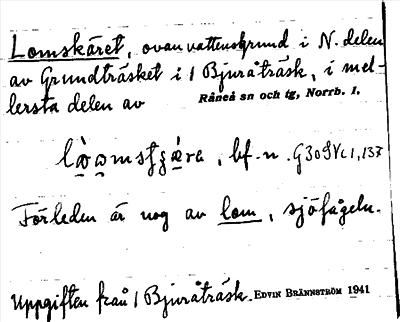 Lomskäret, ovanvattensgrund i N. delen
av Grundträsket i 1 Bjuråträsk, i mel-
lersta delen av Råneå sn och tg, Norrb. l.
bf. n.
Förleden är nog av lom, sjöfågeln.
Uppgiften från 1 Bjuråträsk. EDVIN BRÄNNSTRÖM 1941